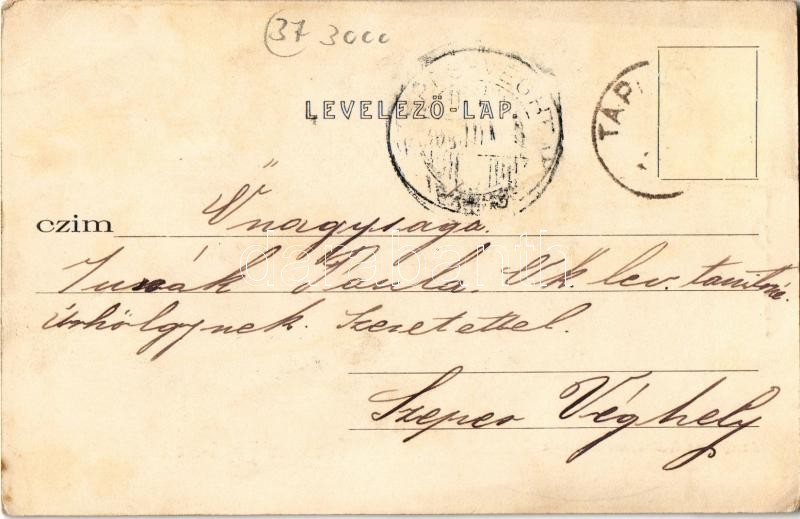 37 3000
LEVELEZŐ-LAP.
TÁPI
czim Őnagysága
Junák Paula. Ok. lev. tanitónő
úrhölgynek. Szeretettel.
Szepes Véghely
darabanth